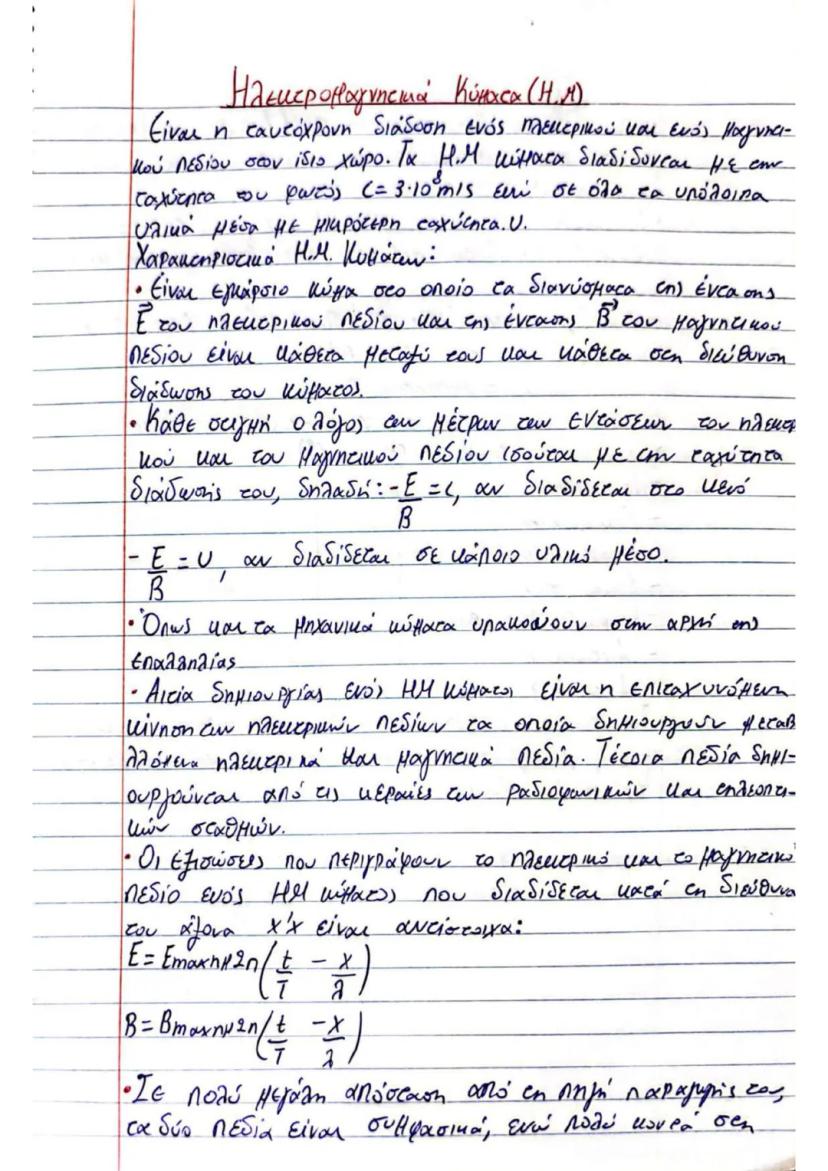 Ηλεκτρομαγνητικά Κύματα (Η.Μ)
Είναι η ταυτόχρονη διάδοση ενός ηλεκτρικού και ενός μαγνητι-
κού πεδίου στον ίδιο χώρο. Τα Η.Μ κύματα διαδίδονται με την
ταχύτητα του φωτός C=3·10⁸m/s ενώ σε όλα τα υπόλοιπα
υλικά μέσα με μικρότερη ταχύτητα υ.
Χαρακτηριστικά Η.Μ. Κυμάτων:
• Είναι εγκάρσιο κύμα στο οποίο τα διανύσματα της έντασης
E⃗ του ηλεκτρικού πεδίου και της έντασης B⃗ του μαγνητικού
πεδίου είναι κάθετα μεταξύ τους και κάθετα στη διεύθυνση
διάδωσης του κύματος.
• Κάθε στιγμή ο λόγος των μέτρων των εντάσεων του ηλεκτρι
κού και του μαγνητικού πεδίου ισούται με την ταχύτητα
διάδωσής του, δηλαδή: - E/B = c, αν διαδίδεται στο κενό
- E/B = υ, αν διαδίδεται σε κάποιο υλικό μέσο.
• Όπως και τα μηχανικά κύματα υπακούουν στην αρχή της
επαλληλίας
• Αιτία δημιουργίας ενός ΗΜ κύματος είναι η επιταχυνόμενη
κίνηση των ηλεκτρικών πεδίων τα οποία δημιουργούν μεταβ
λλόμενα ηλεκτρικά και μαγνητικά πεδία. Τέτοια πεδία δημι-
ουργούνται από τις κεραίες των ραδιοφωνικών και τηλεοπτι-
κών σταθμών.
• Οι εξισώσεις που περιγράφουν το ηλεκτρικό και το μαγνητικό
πεδίο ενός ΗΜ κύματος που διαδίδεται κατά τη διεύθυνσ
του άξονα x'x είναι αντίστοιχα:
E = Emaxημ2π(t/T - x/λ)
B = Bmaxημ2π(t/T - x/λ)
• Σε πολύ μεγάλη απόσταση από τη πηγή παραγωγής του,
τα δύο πεδία είναι συμφασικά, ενώ πολύ κοντά στη